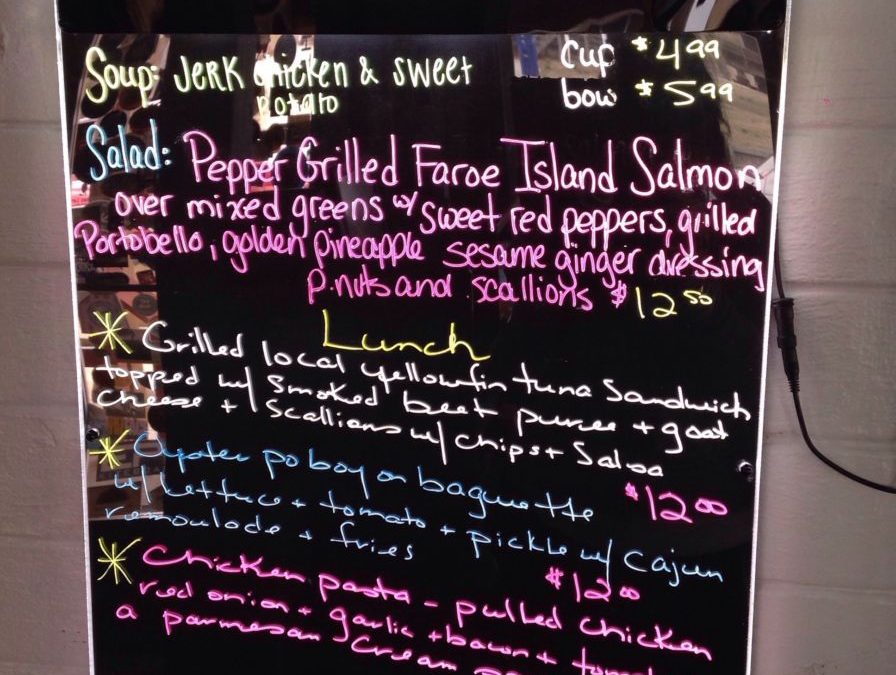 Soup: Jerk chicken & sweet potato
cup $4.99
bowl $5.99
Salad: Pepper Grilled Faroe Island Salmon
over mixed greens w/ sweet red peppers, grilled
Portobello, golden pineapple sesame ginger dressing
p.nuts and scallions $12.50
Lunch
* Grilled local yellowfin tuna Sandwich
topped w/ smoked beet puree + goat
cheese + scallions w/ chips + Salsa
$12.00
* Oyster po boy on baguette
w/ lettuce + tomato + pickle w/ Cajun
remoulade + fries
$12.00
* Chicken pasta - pulled chicken
red onion + garlic + bacon +
a parmesan cream